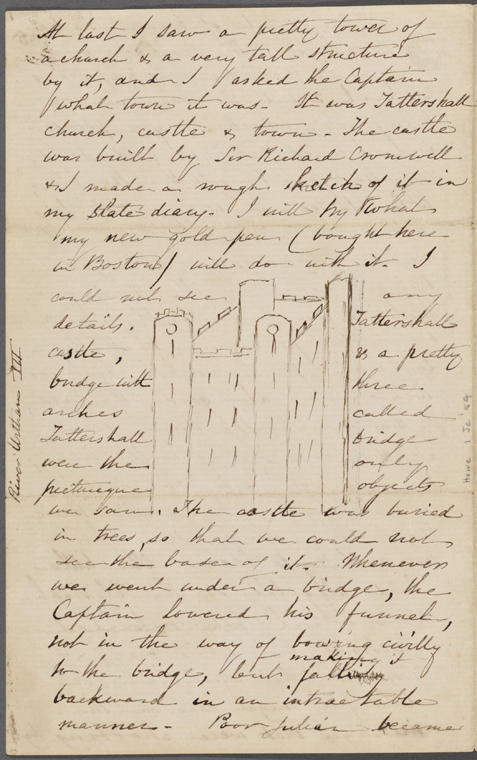 At last I saw a pretty tower of
a church & a very tall structure
by it, and I asked the Captain
what town it was. It was Tattershall
church, castle & town. The castle
was built by Sir Richard Cromwell
& I made a rough sketch of it in
my State diary. I will try what
my new gold pen (bought here
in Boston) will do with it. I
could not see any
details. Tattershall
castle, & a pretty
bridge with three
arches called
Tattershall bridge
were the only
picturesque objects
we saw. The castle was buried
in trees, so that we could not
see the base of it. Whenever
we went under a bridge, the
Captain lowered his funnel,
not in the way of bowing civilly
making it
to the bridge, but fall
backward in an intractable
manner. Poor Julian became
River Witham III
Howe 1 Je '59